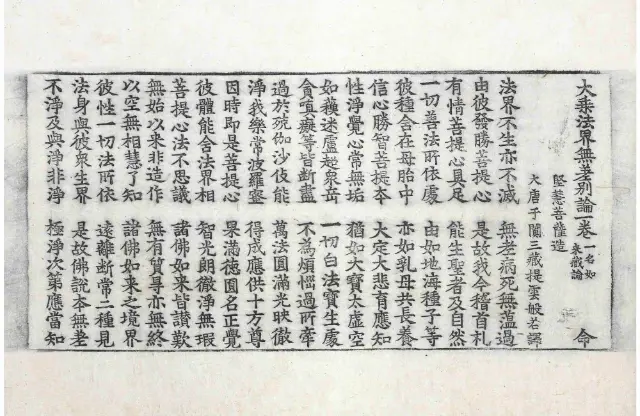 大乗法界無差別論卷一名如来藏論 命
堅慧菩薩造
大唐于闐三藏提雲般若譯
法界不生亦不滅 無老病死無蘊過
由彼發勝菩提心 是故我今稽首札
有情菩提心具足 能生聖者及自然
一切善法所依處 由如地海種子等
彼種含在母胎中 亦如乳母共長養
信心勝智菩提夲 大定大悲有應知
性淨覺心常無垢 猶如大寶太虛空
如藕迷盧超衆岳 一切白法寶生處
貪嗔癡等皆斷盡 不為煩惱過所牽
過於殑伽沙伎能 萬法圓滿光映徹
淨我樂常波羅蜜 得成應供十方尊
因時即是菩提心 果滿德圓名正覺
彼體能含法界相 智光朗徹淨無瑕
菩提心法不思議 諸佛如来皆讃歎
無始以来非造作 無有質导亦無終
以空無相慧了知 諸佛如来之境界
彼性一切法所依 遠離斷常二種見
法身與彼衆生界 是故佛說夲無差
不淨及與淨非淨 極淨次第應當知